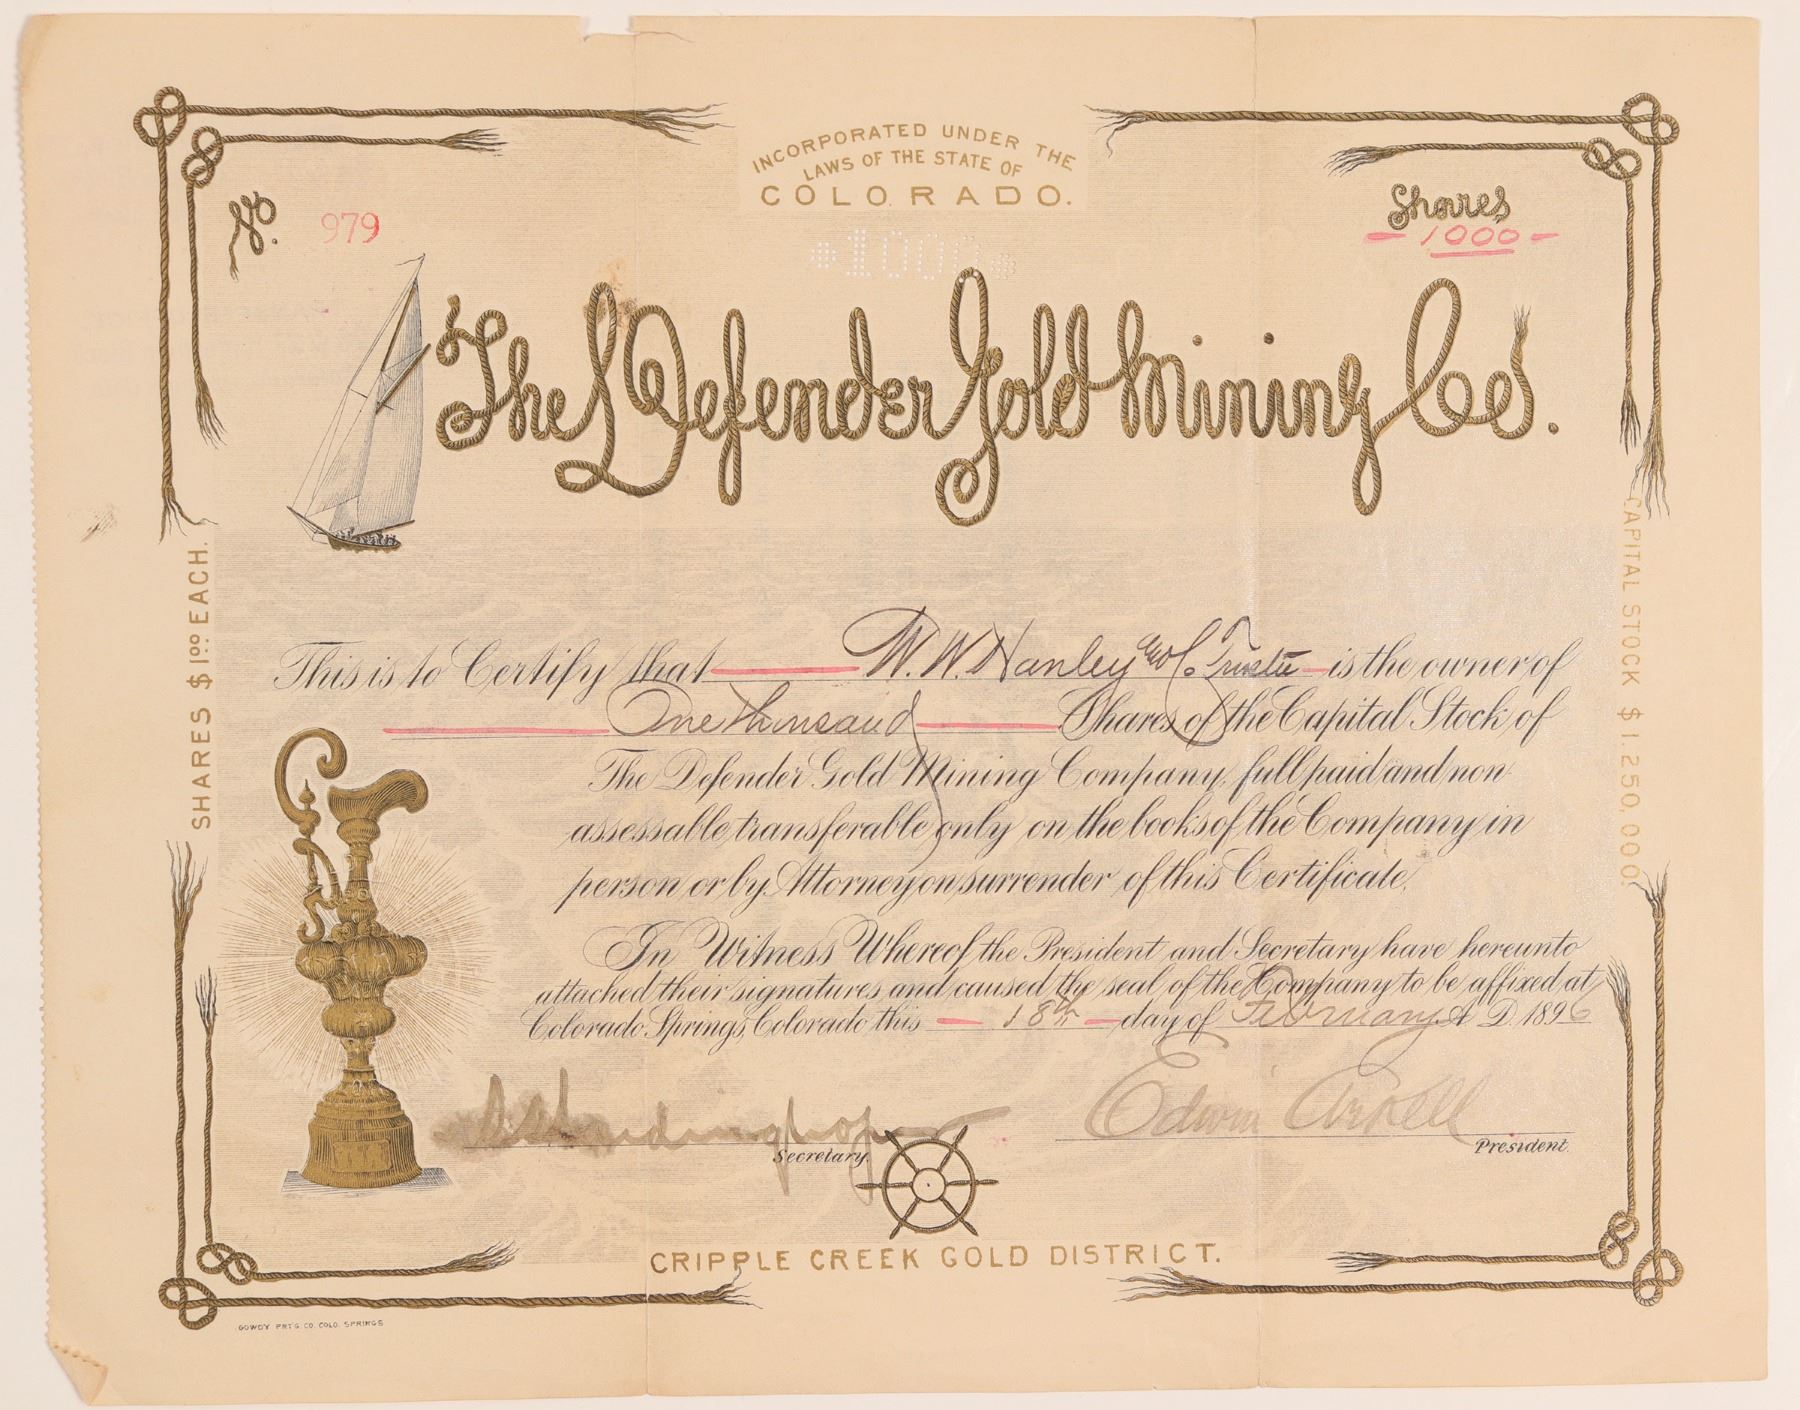 INCORPORATED UNDER THE
LAWS OF THE STATE OF
COLORADO.
No. 979
Shares
1000
1000
The Defender Gold Mining Co.
SHARES $1.00 EACH.
CAPITAL STOCK $1.250,000.
This is to Certify that W. W. Hanley & Co. Trustee is the owner of
One thousand Shares of the Capital Stock of
The Defender Gold Mining Company, full paid and non
assessable, transferable only on the books of the Company in
person or by Attorney on surrender of this Certificate.
In Witness Whereof the President and Secretary have hereunto
attached their signatures and caused the seal of the Company to be affixed at
Colorado Springs, Colorado this 18th day of February A. D. 1896
Edwin Arkell
Secretary.
President.
CRIPPLE CREEK GOLD DISTRICT.
GOWDY PRT'G. CO. COLO. SPRINGS